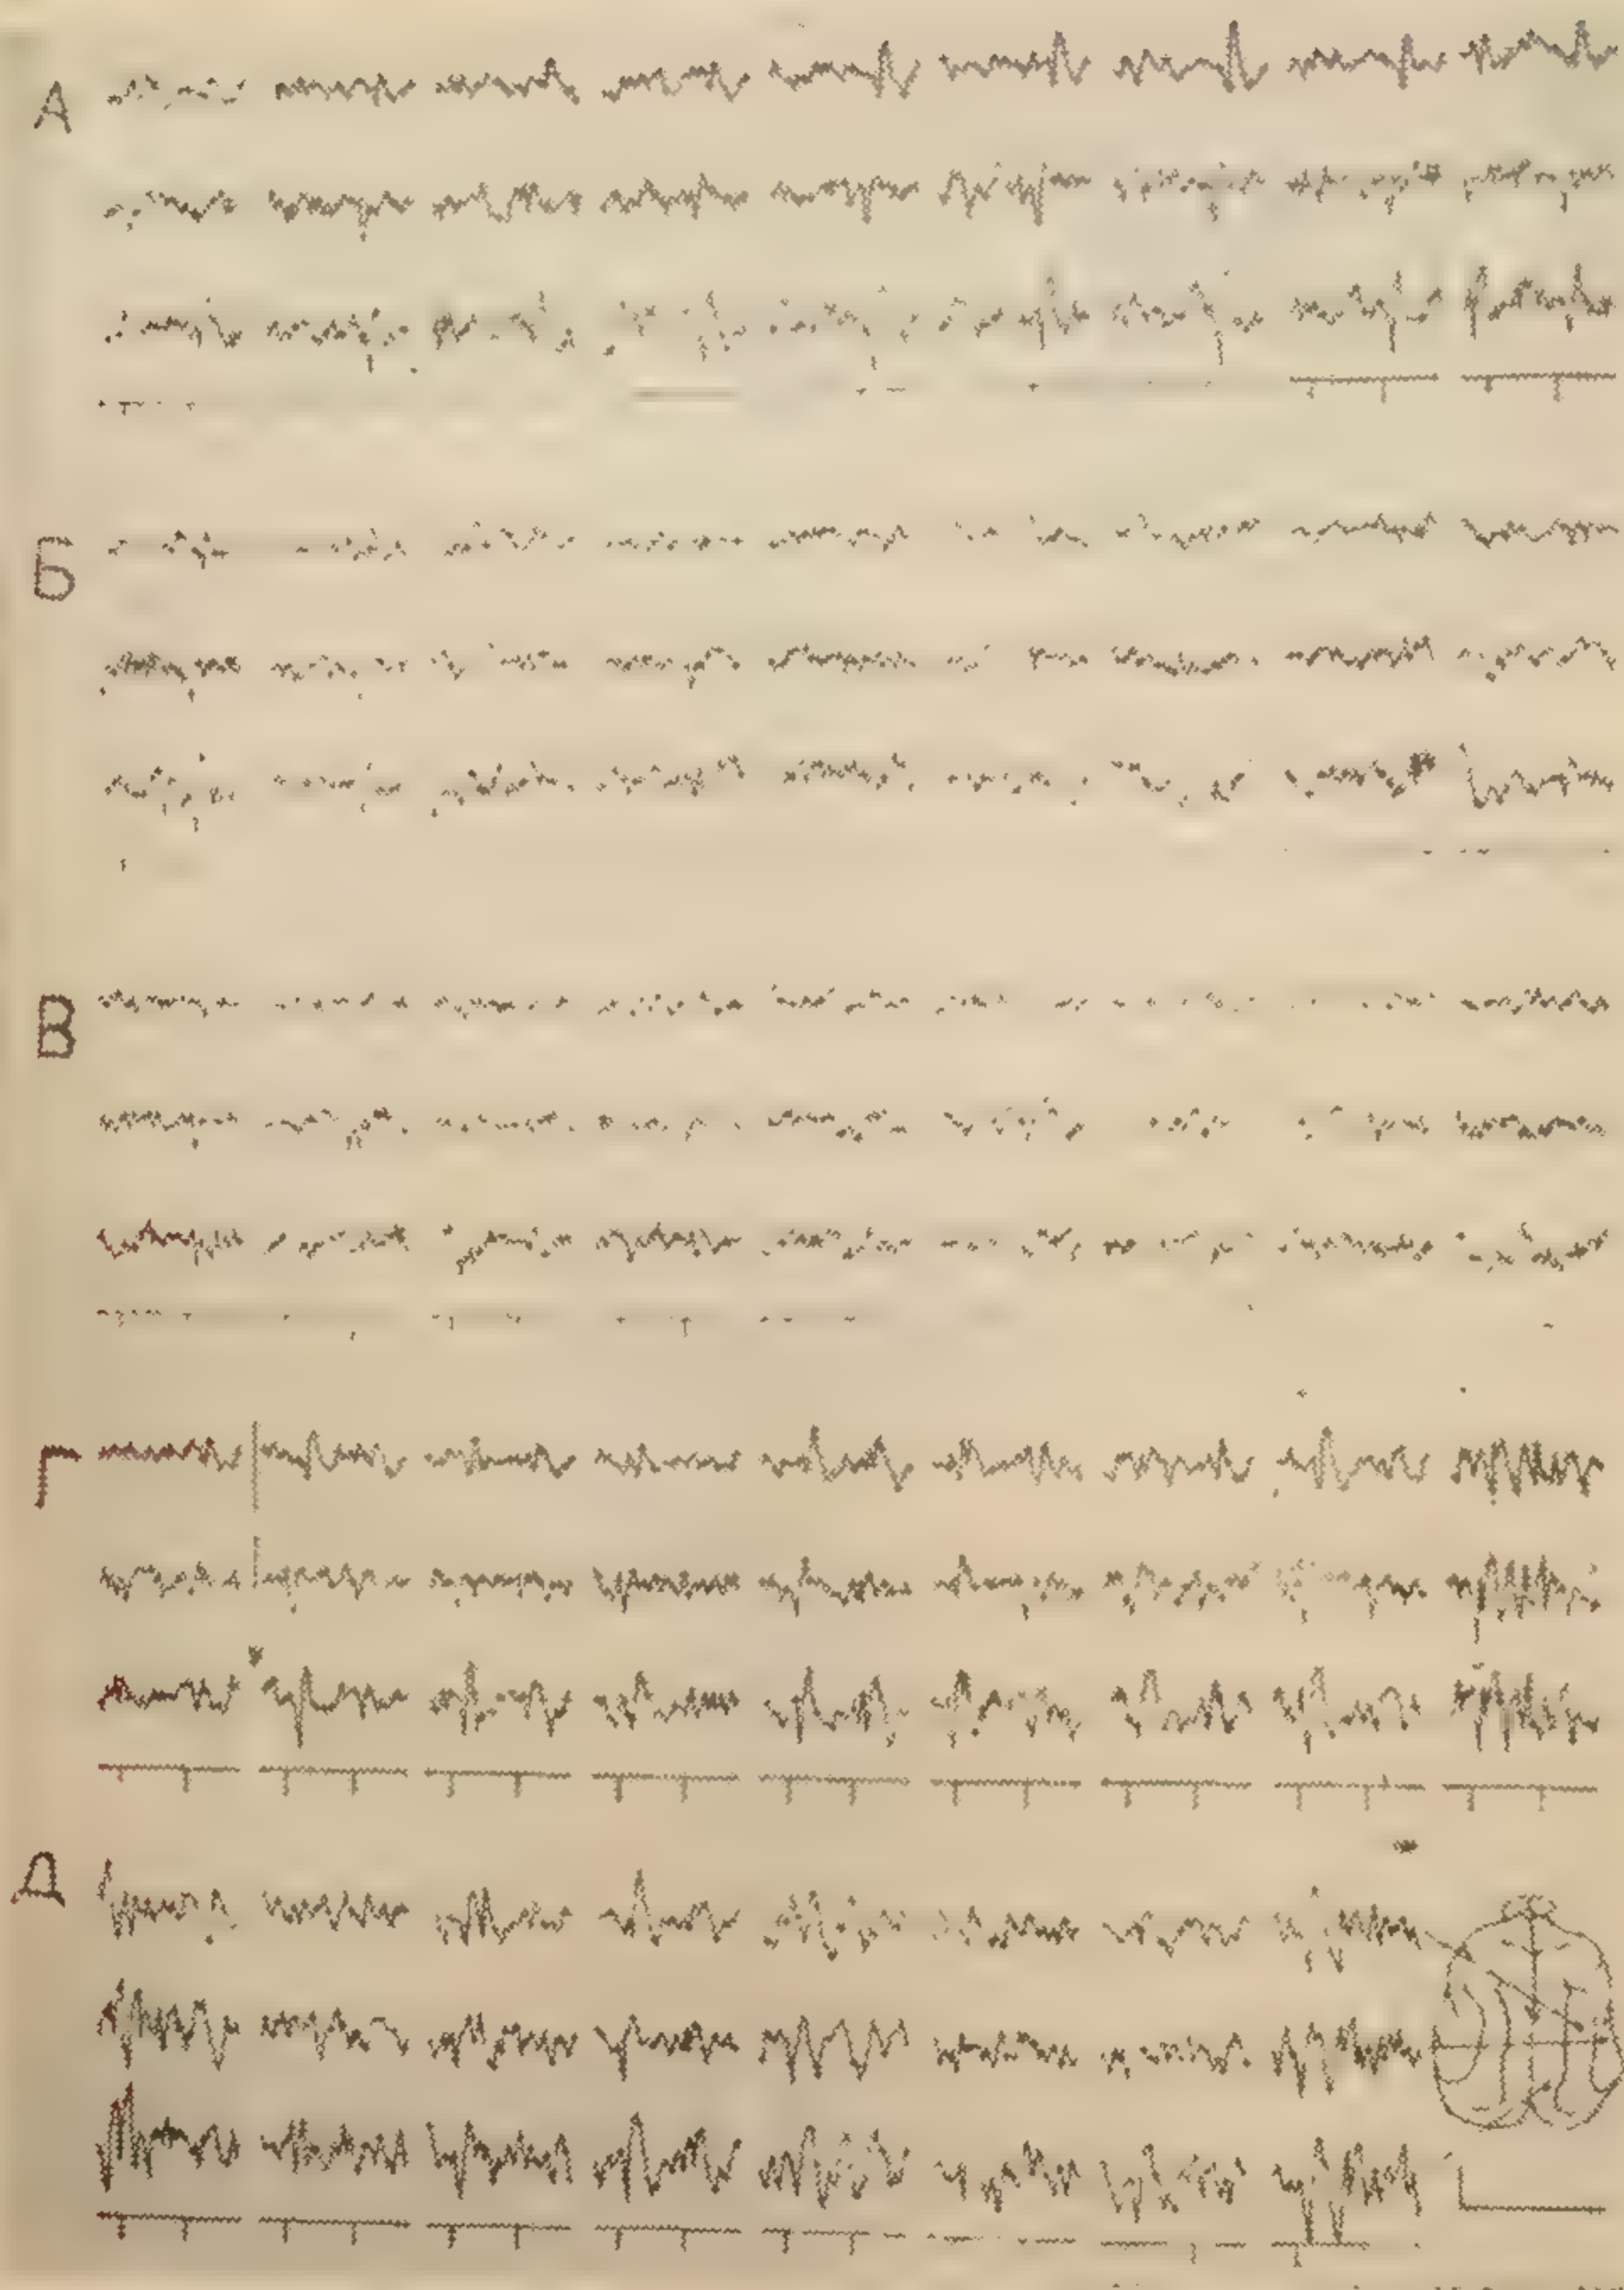 А
Б
В
Г
Д